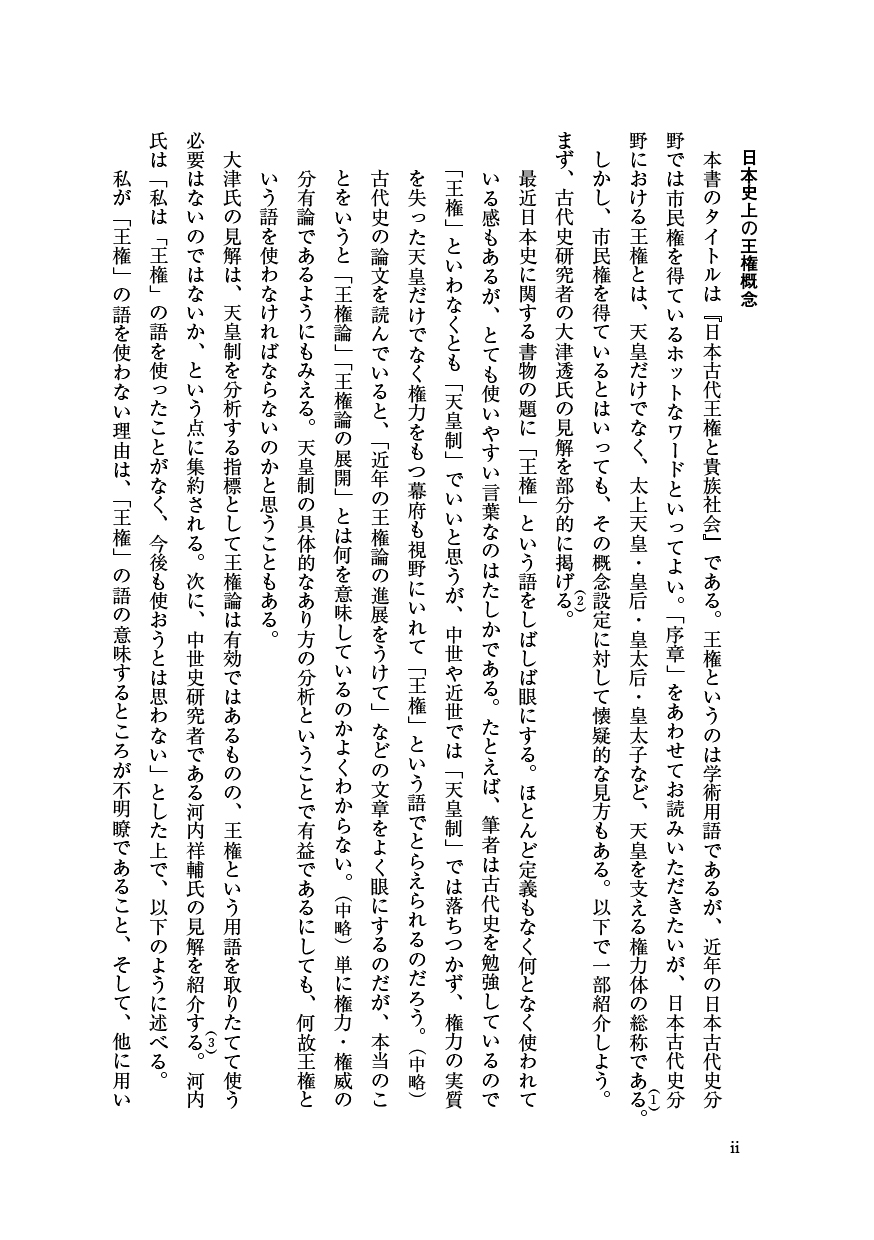 日本史上の王権概念
本書のタイトルは『日本古代王権と貴族社会』である。王権というのは学術用語であるが、近年の日本古代史分
野では市民権を得ているホットなワードといってよい。「序章」をあわせてお読みいただきたいが、日本古代史分
野における王権とは、天皇だけでなく、太上天皇・皇后・皇太后・皇太子など、天皇を支える権力体の総称である(1)。
しかし、市民権を得ているとはいっても、その概念設定に対して懐疑的な見方もある。以下で一部紹介しよう。
まず、古代史研究者の大津透氏の見解を部分的に掲げる(2)。
最近日本史に関する書物の題に「王権」という語をしばしば眼にする。ほとんど定義もなく何となく使われて
いる感もあるが、とても使いやすい言葉なのはたしかである。たとえば、筆者は古代史を勉強しているので
「王権」といわなくとも「天皇制」でいいと思うが、中世や近世では「天皇制」では落ちつかず、権力の実質
を失った天皇だけでなく権力をもつ幕府も視野にいれて「王権」という語でとらえられるのだろう。(中略)
古代史の論文を読んでいると、「近年の王権論の進展をうけて」などの文章をよく眼にするのだが、本当のこ
とをいうと「王権論」「王権論の展開」とは何を意味しているのかよくわからない。(中略)単に権力・権威の
分有論であるようにもみえる。天皇制の具体的なあり方の分析ということで有益であるにしても、何故王権と
いう語を使わなければならないのかと思うこともある。
大津氏の見解は、天皇制を分析する指標として王権論は有効ではあるものの、王権という用語を取りたてて使う
必要はないのではないか、という点に集約される。次に、中世史研究者である河内祥輔氏の見解を紹介する(3)。河内
氏は「私は「王権」の語を使ったことがなく、今後も使おうとは思わない」とした上で、以下のように述べる。
私が「王権」の語を使わない理由は、「王権」の語の意味するところが不明瞭であること、そして、他に用い
ii